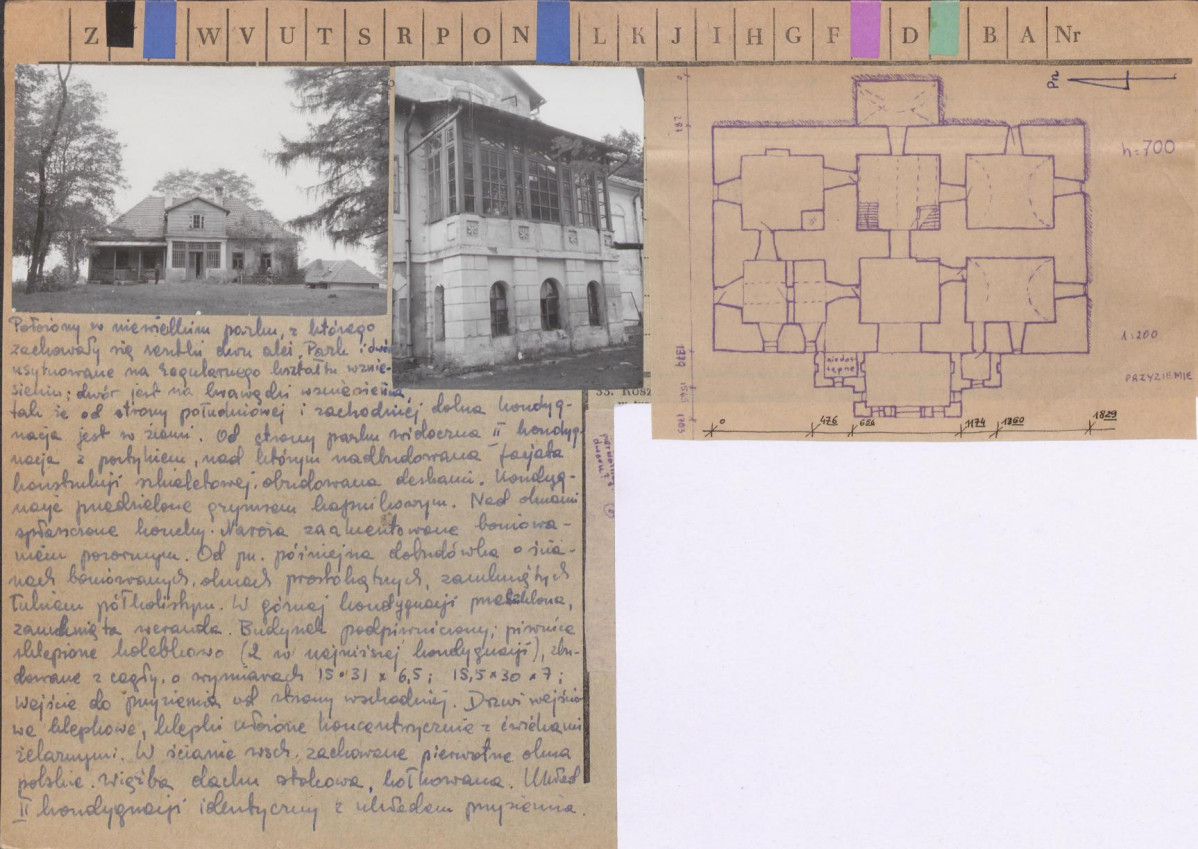 Z W V U T S R P O N L K J I H G F D B A Nr
Położony w niewielkim parku, z którego
zachowały się resztki dwu alei. Park i dwór
usytuowane na regularnego kształtu wznie-
sieniu; dwór jest na krawędzi wzniesienia
tak że od strony południowej i zachodniej dolna kondyg-
nacja jest w ziemi. Od strony parku widoczna II kondyg-
nacja z portykiem, nad którym nadbudowana facjata
konstrukcji szkieletowej, obudowana deskami. Kondyg-
nacje przedzielone gzymsem kapnikowym. Nad oknami
spłaszczone konchy. Naroża zaakcentowane boniowa-
niem pozornym. Od pn. późniejsza dobudówka o ścia-
nach boniowanych, oknach prostokątnych, zamkniętych
łukiem półkolistym. W górnej kondygnacji przeszklona,
zamknięta weranda. Budynek podpiwniczony; piwnice
sklepione kolebkowo (2 w najniższej kondygnacji), zbu-
dowane z cegły o wymiarach 15 × 31 × 6,5; 15,5 × 30 × 7;
Wejście do przyziemia od strony wschodniej. Drzwi wejścio-
we klepkowe, klepki ułożone koncentrycznie z ćwiekami
żelaznymi. W ścianie wsch. zachowane pierwotne okna
polskie. Więźba dachu stolcowa, kołkowana. Układ
II kondygnacji identyczny z układem przyziemia.
33. Kosz
Pn
h=700
1:200
PRZYZIEMIE
niedos-
tępne
0 187 1379 1565
0 476 656 1174 1360 1829